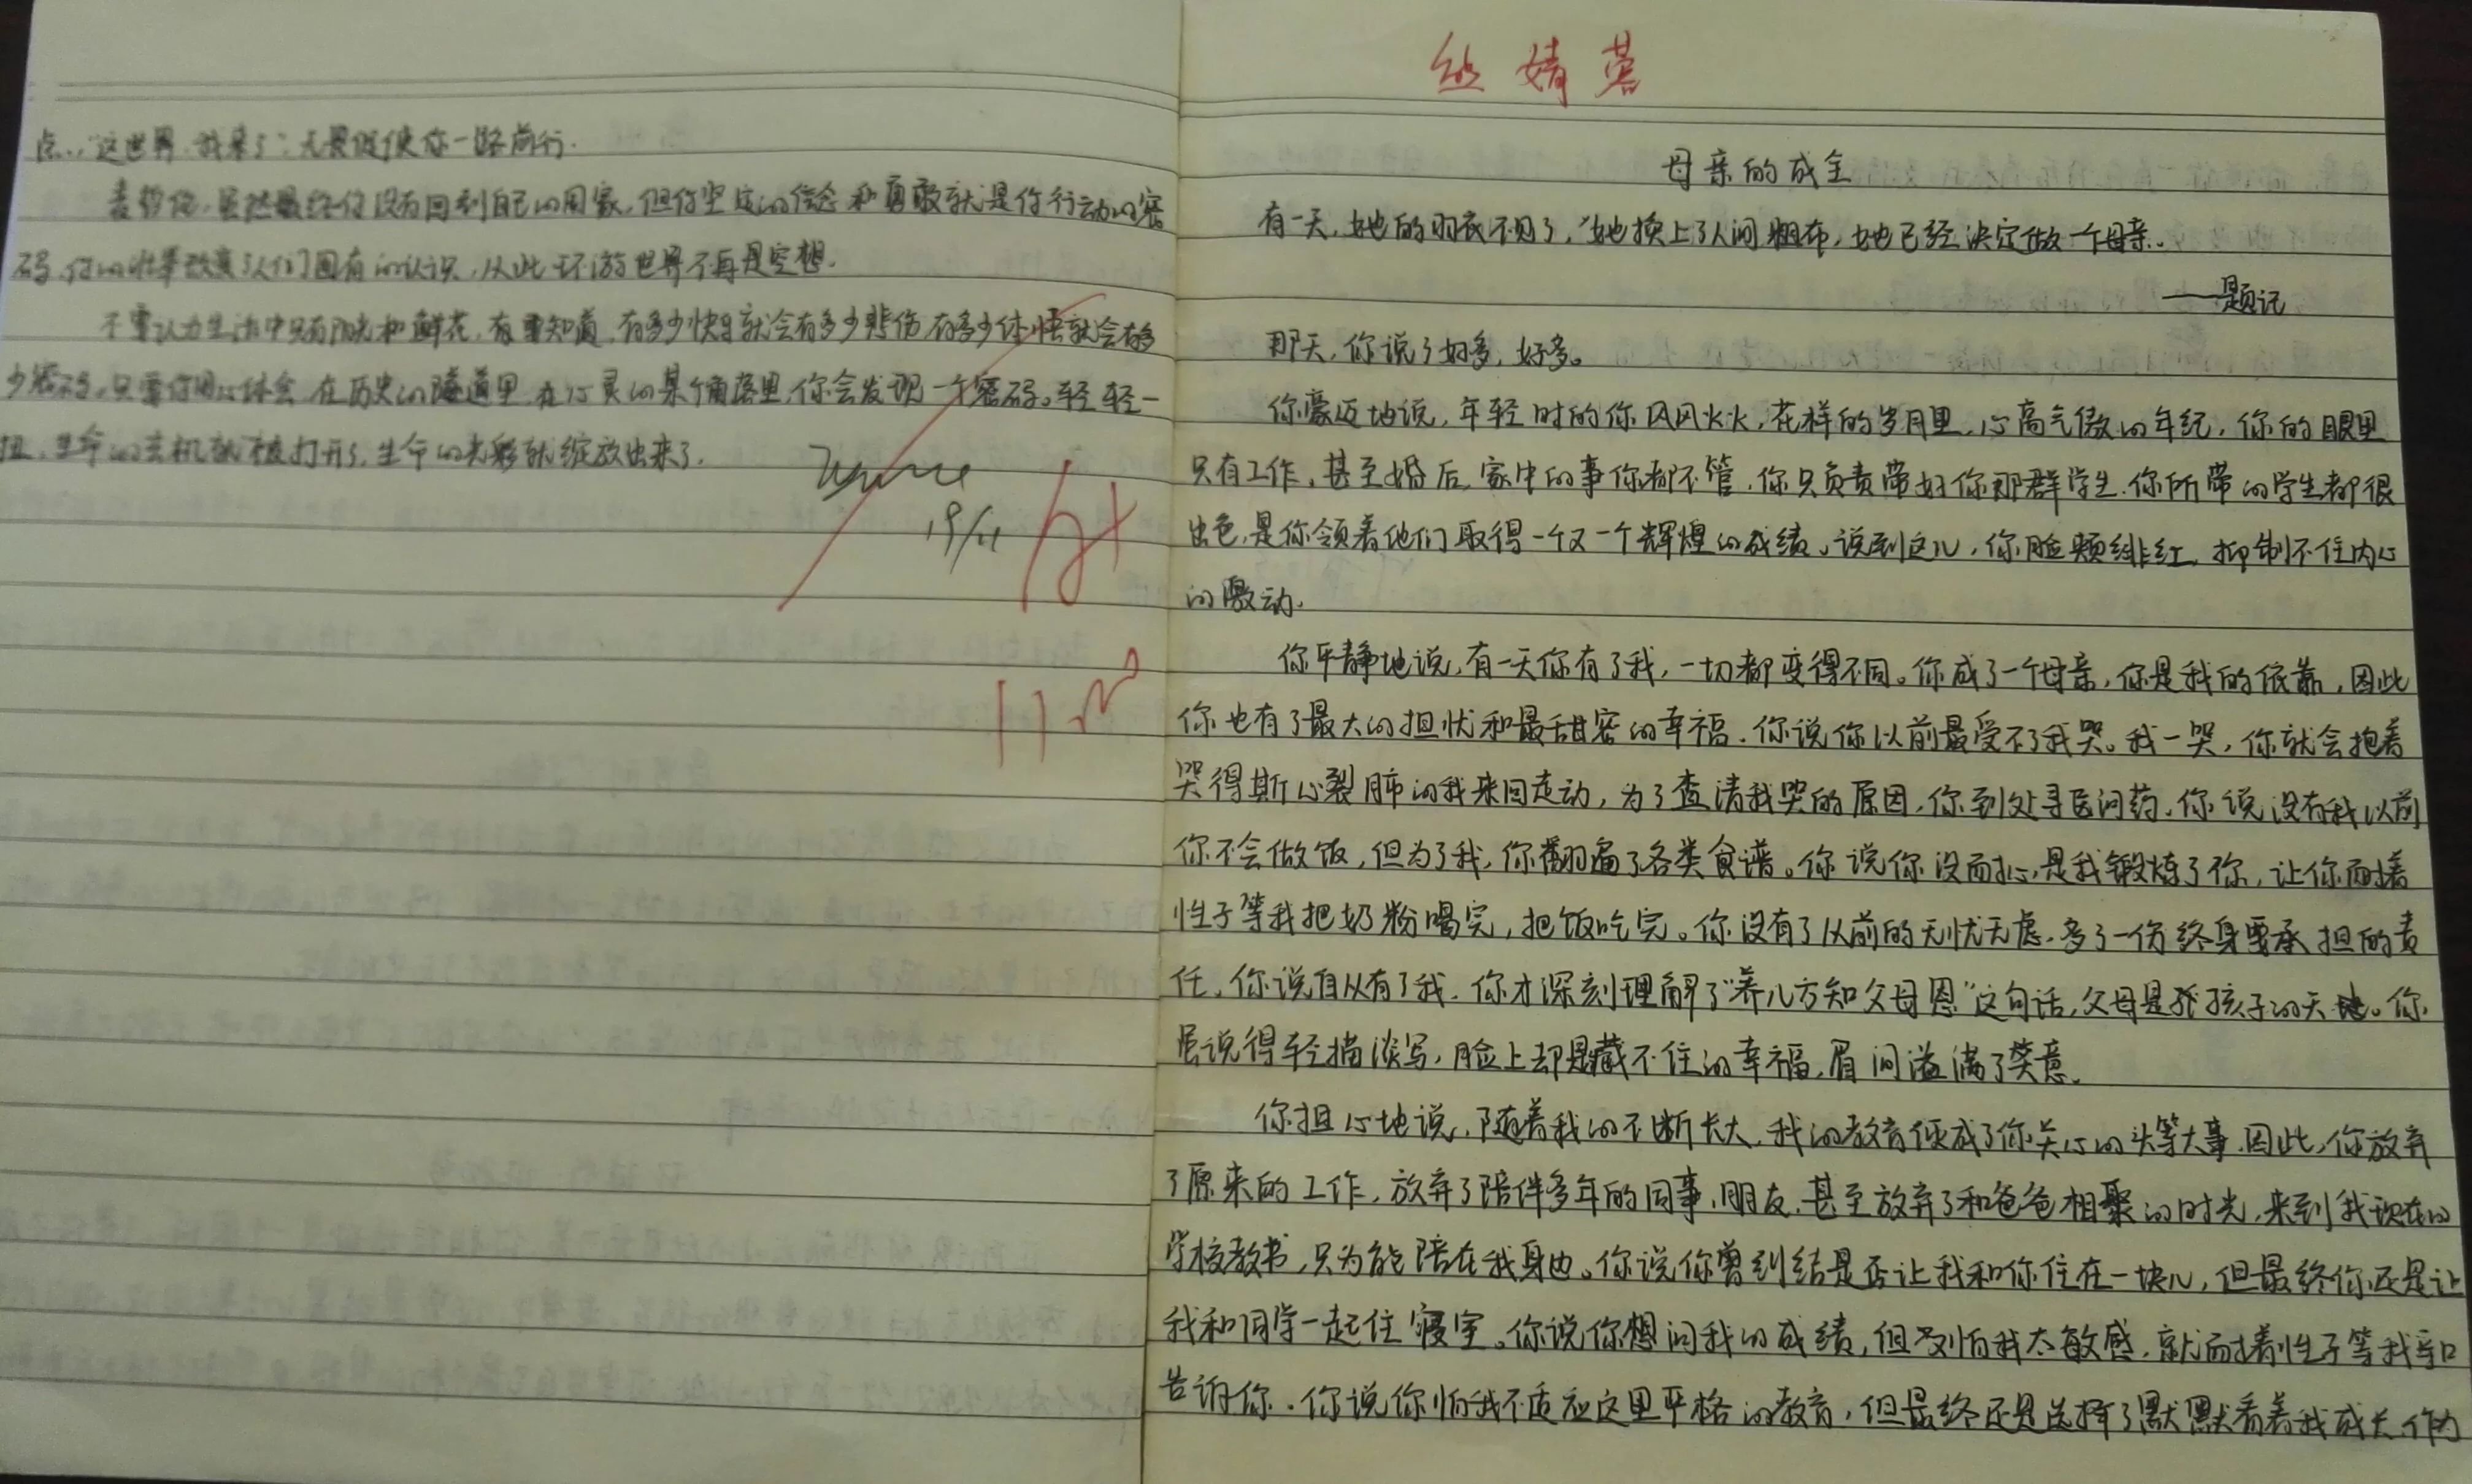 点，“这世界，我来了”，无畏促使你一路前行.
麦哲伦，虽然最终你没有回到自己的国家，但你坚定的信念和勇敢就是你行动的密
码，你的壮举改变了人们固有的认识，从此环游世界不再是空想.
不要认为生活中只有阳光和鲜花，有要知道，有多少快乐就会有多少悲伤，有多少体悟就会有多
少密码。只要你用心体会，在历史的隧道里，在心灵的某个角落里，你会发现一个密码。轻轻一
扭，生命的玄机就被打开了，生命的光彩就绽放出来了.
19/11
婧蓉
母亲的成全
有一天，她的羽衣不见了，她换上了人间粗布，她已经决定做一个母亲。
——题记
那天，你说了好多，好多。
你豪迈地说，年轻时的你风风火火，花样的岁月里，心高气傲的年纪，你的眼里
只有工作，甚至婚后，家中的事你都不管，你只负责带好你那群学生，你所带的学生都很
出色，是你领着他们取得一个又一个辉煌的成绩。说到这儿，你脸颊绯红，抑制不住内心
的激动.
你平静地说，有一天你有了我，一切都变得不同。你成了一个母亲，你是我的依靠，因此
你也有了最大的担忧和最甜密的幸福。你说你以前最受不了我哭。我一哭，你就会抱着
哭得斯心裂肺的我来回走动，为了查清我哭的原因，你到处寻医问药。你说没有我以前
你不会做饭，但为了我，你翻遍了各类食谱。你说你没耐心，是我锻炼了你，让你耐着
性子等我把奶粉喝完，把饭吃完。你没有了从前的无忧无虑，多了一份终身要承担的责
任，你说自从有了我，你才深刻理解了“养儿方知父母恩”这句话，父母是孩子的天地。你
虽说得轻描淡写，脸上却是藏不住的幸福，眉间溢满了笑意。
你担心地说，随着我的不断长大，我的教育便成了你关心的头等大事，因此，你放弃
了原来的工作，放弃了陪伴多年的同事，朋友，甚至放弃了和爸爸相聚的时光，来到我现在的
学校教书，只为能陪在我身边。你说你曾纠结是否让我和你住在一块儿，但最终你还是让
我和同学一起住寝室。你说你想问我的成绩，但又怕我太敏感，就耐着性子等我亲口
告诉你。你说你怕我不适应这里严格的教育，但最终还是选择了默默看着我成长，作为